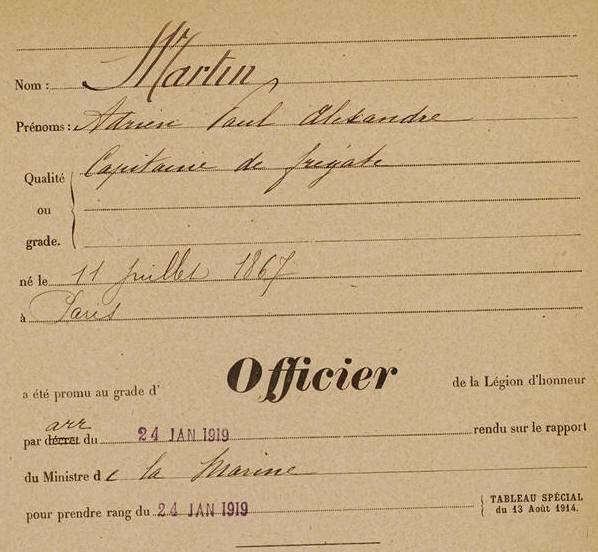 Nom : Martin
Prénoms : Adrien Paul Alexandre
Qualité Capitaine de frégate
ou
grade.
né le 11 juillet 1867
à Paris
a été promu au grade d' Officier de la Légion d'honneur
arr
par décret du 24 JAN 1919 rendu sur le rapport
du Ministre de la Marine
pour prendre rang du 24 JAN 1919 TABLEAU SPÉCIAL
du 13 Août 1914.